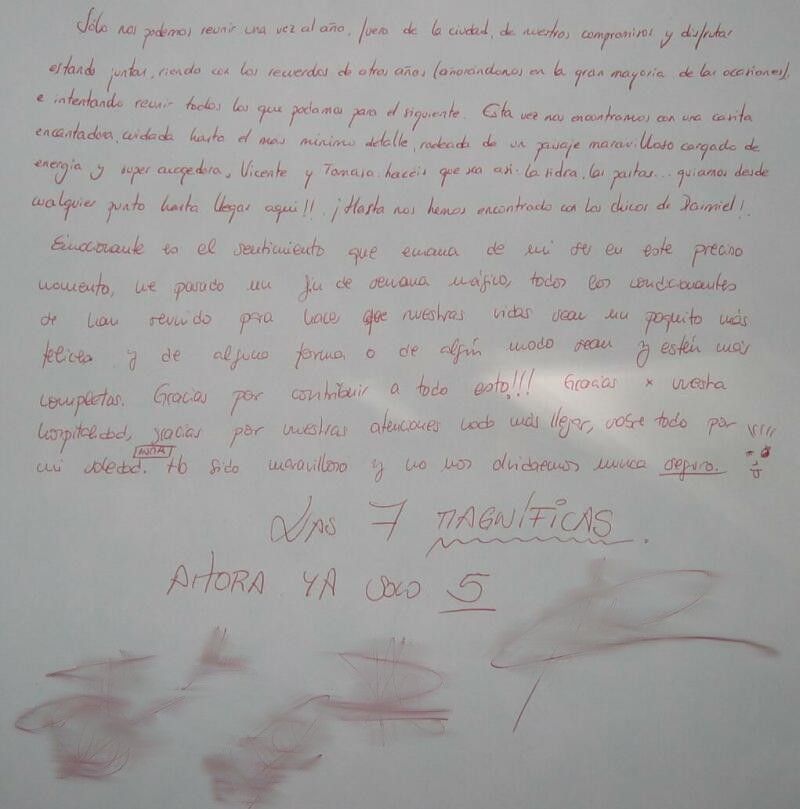 Sólo nos podemos reunir una vez al año, fuera de la ciudad, de nuestros compromisos y disfrutar
estando juntas, riendo con los recuerdos de otros años (añorándonos en la gran mayoría de las ocasiones),
e intentando reunir todos los que podamos para el siguiente. Esta vez nos encontramos con una casita
encantadora, cuidada hasta el más mínimo detalle, rodeada de un paisaje maravilloso cargado de
energía y super acogedora. Vicente y Tomasa hacéis que sea así. La sidra, las pastas... guiarnos desde
cualquier punto hasta llegar aquí!!. ¡Hasta nos hemos encontrado con los chicos de Daimiel!
Emocionante es el sentimiento que emana de mi ser en este preciso
momento, he pasado un fin de semana mágico, todos los condicionantes
se han reunido para hacer que nuestras vidas sean un poquito más
felices y de alguna forma o de algún modo sean y estén más
completas. Gracias por contribuir a todo esto!!! Gracias x vuestra
hospitalidad, gracias por vuestras atenciones nada más llegar, sobre todo por
mi soledad. Ha sido maravilloso y no nos olvidaremos nunca seguro.
Las 7 MAGNÍFICAS.
AHORA YA SOLO 5